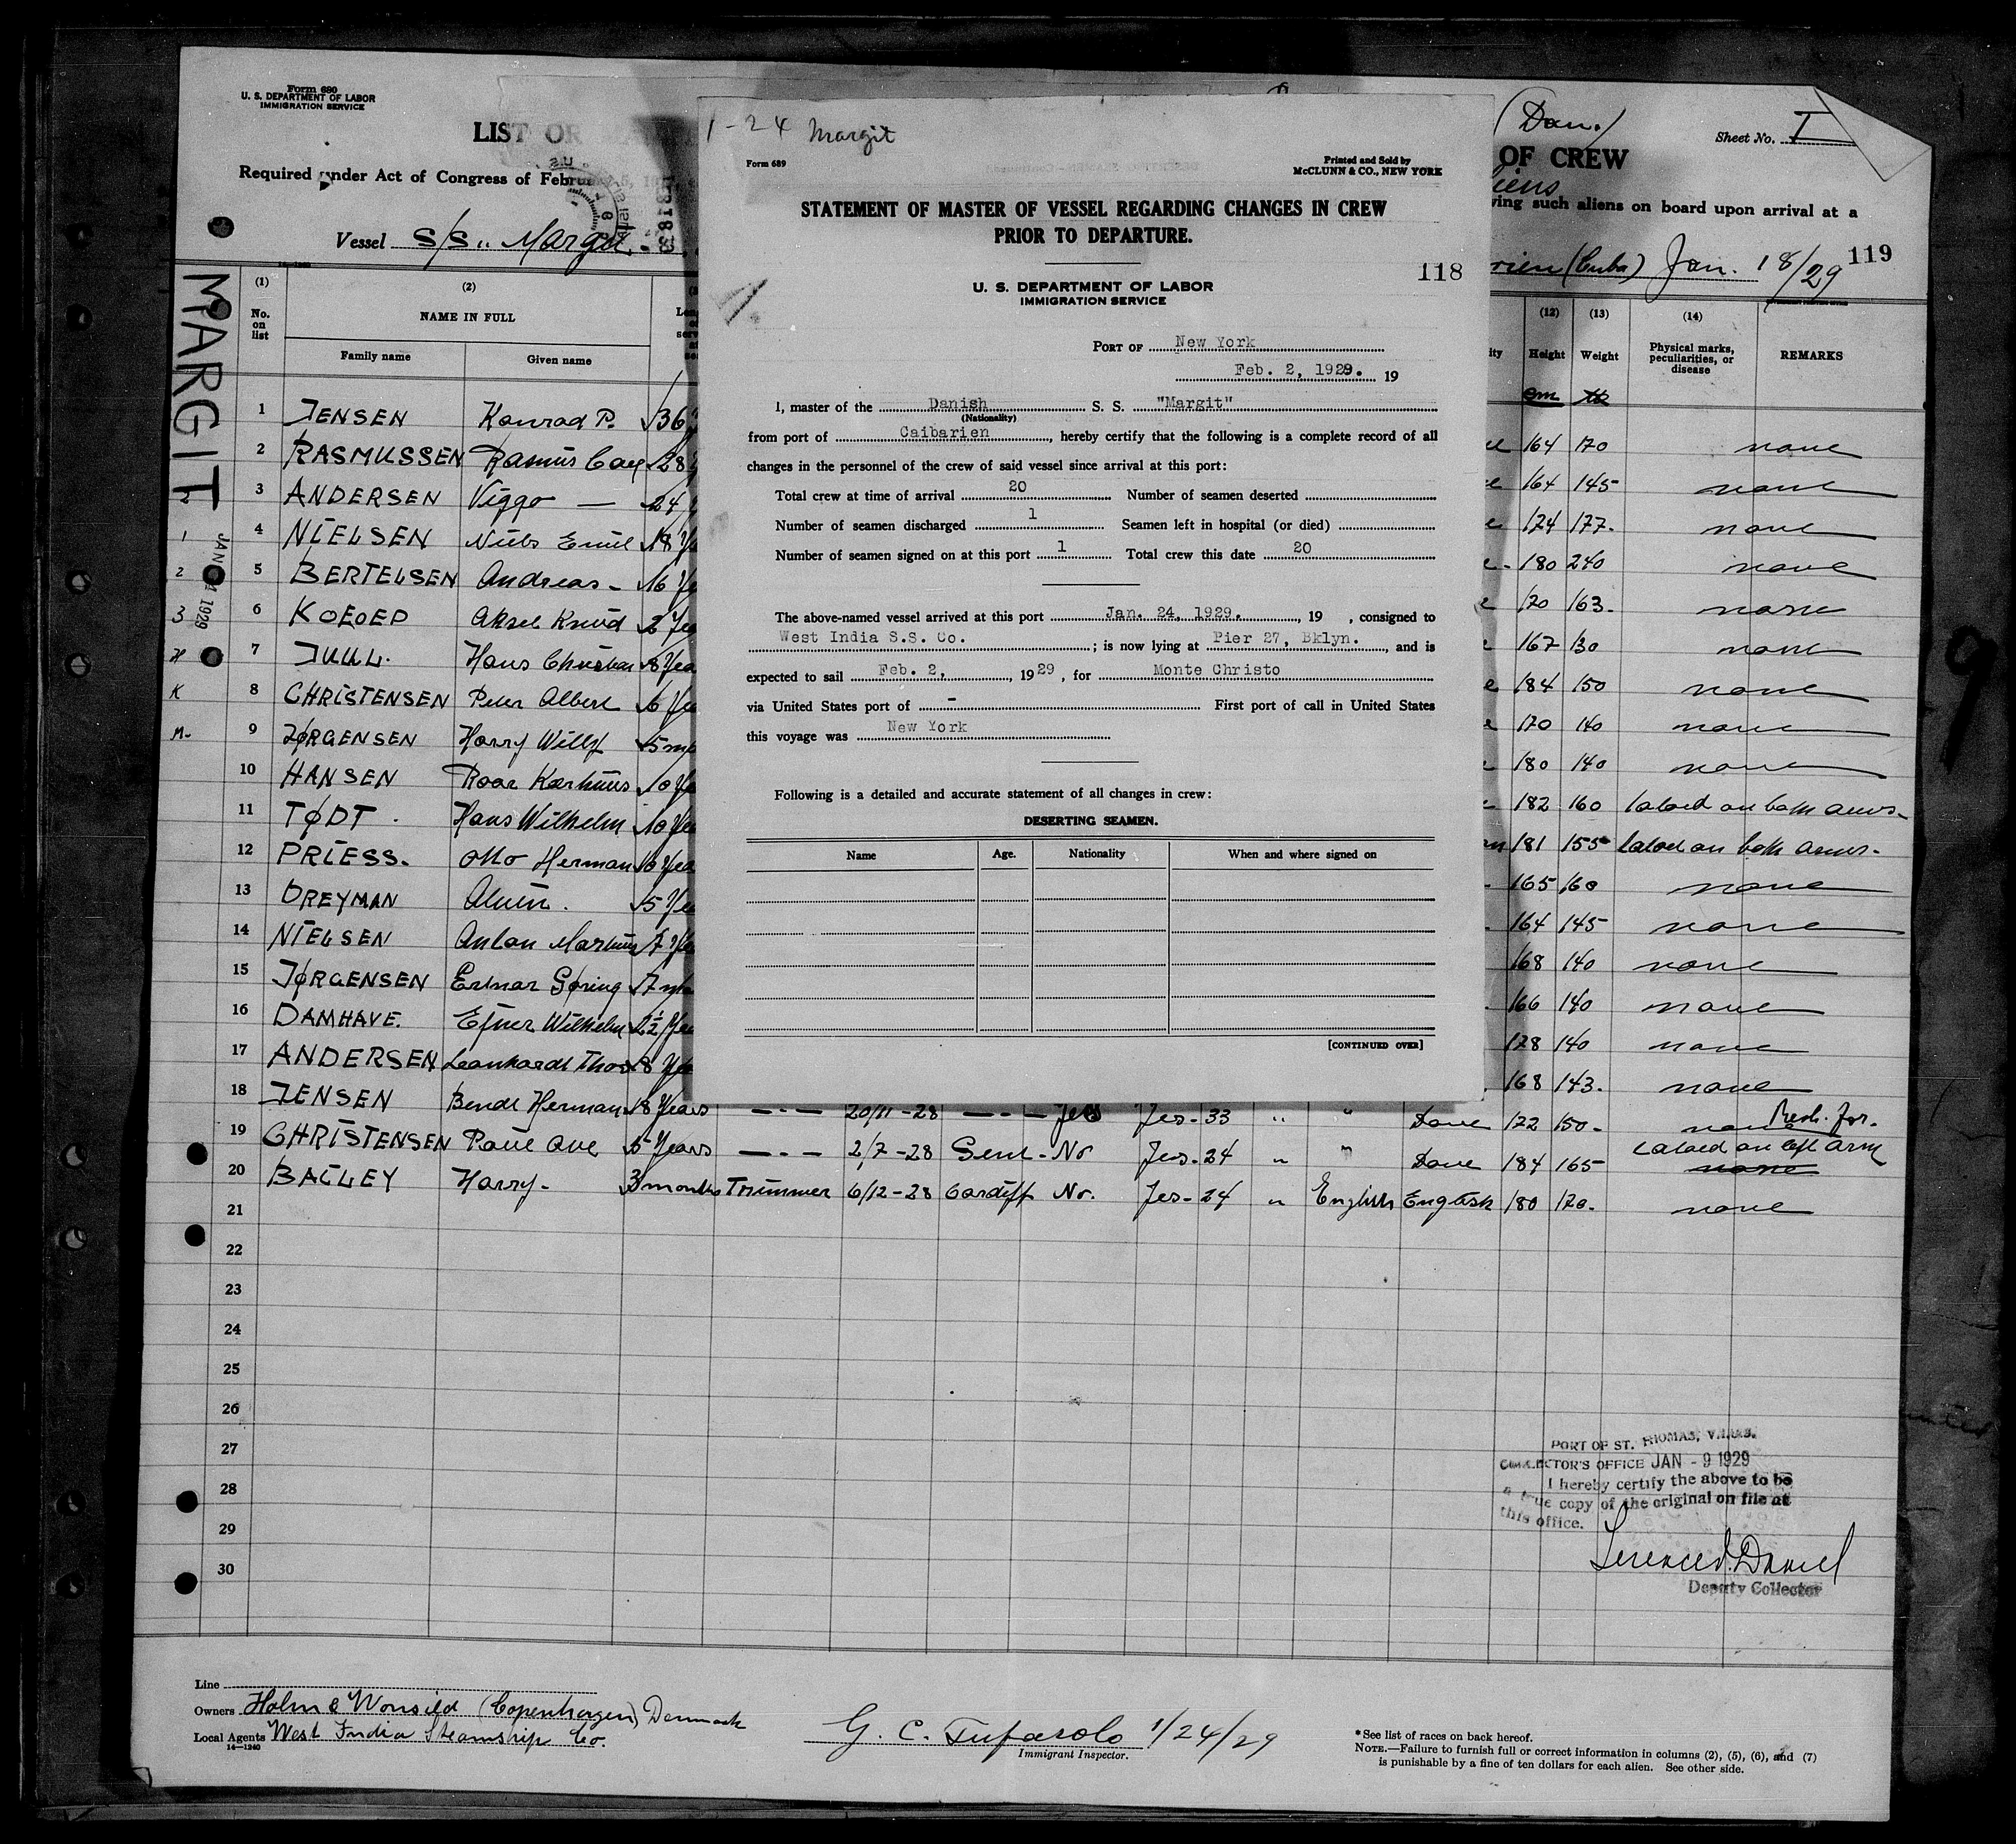 Form 680
U. S. DEPARTMENT OF LABOR
IMMIGRATION SERVICE
LIST OR
Required under Act of Congress of February 5,
Vessel S/S „ Margit
MARGIT
JAN 1929
(1) (2)
No. on list
NAME IN FULL
Family name Given name
1 JENSEN Konrad P. 36
2 RASMUSSEN Rasmus Caey 28
3 ANDERSEN Viggo — 24
4 NIELSEN Niels Emil 18 Ye
5 BERTELSEN Andreas - 16 Ye
6 KOEOED Aksel Knud 2 Yea
7 JUUL. Hans Christian 8 Yea
8 CHRISTENSEN Peter Albert 6 Ye
9 JØRGENSEN Harry Willy 5 mo
10 HANSEN Roar Karhuus 10 Ye
11 TØDT . Hans Wilhelm 10 Ye
12 PRIESS. Otto Herman 16 Yea
13 DREYMAN Alwin . 5 Ye
14 NIELSEN Anton Martinus 7 Ye
15 JØRGENSEN Ejnar Søring 7 m
16 DAMHAVE. Ejner Wilhelm 2½ Yea
17 ANDERSEN Leonhardt Thor 8 Ye
18 JENSEN Bendt Herman 8 Years —·— 20/11-28 —·— Yes Yes-33 „ " Dane 172 150- none Resh. for.
19 CHRISTENSEN Poul Ove 5 Years —·— 2/7-28 Gent- No Yes-24 „ " Dane 184 165 tatoed on left arm none
20 BAILEY Harry- 3 months Trimmer 6/12-28 Cardiff No. Yes-24 „ English English 180 170- none
21
22
23
24
25
26
27
28
29
30
1-24 Margit
Form 689
Printed and Sold by
McCLUNN & CO., NEW YORK
STATEMENT OF MASTER OF VESSEL REGARDING CHANGES IN CREW
PRIOR TO DEPARTURE.
118
U. S. DEPARTMENT OF LABOR
IMMIGRATION SERVICE
PORT OF New York
Feb. 2, 1929. 19
I, master of the Danish S. S. "Margit"
(Nationality)
from port of Caibarien, hereby certify that the following is a complete record of all
changes in the personnel of the crew of said vessel since arrival at this port:
Total crew at time of arrival 20 Number of seamen deserted
Number of seamen discharged 1 Seamen left in hospital (or died)
Number of seamen signed on at this port 1 Total crew this date 20
The above-named vessel arrived at this port Jan. 24, 1929. , 19 , consigned to
West India S.S. Co. ; is now lying at Pier 27, Bklyn. , and is
expected to sail Feb. 2, , 1929 , for Monte Christo
via United States port of - First port of call in United States
this voyage was New York
Following is a detailed and accurate statement of all changes in crew:
DESERTING SEAMEN.
Name Age. Nationality When and where signed on
[CONTINUED OVER]
(Dan.)
Sheet No. I
OF CREW
iens
ving such aliens on board upon arrival at a
rien (Cuba) Jan. 18/29 119
(12) (13) (14)
Height Weight Physical marks, peculiarities, or disease REMARKS
cm
164 170 none
164 145 none
174 177. none
180 240 none
170 163. none
167 130 none
184 150 none
170 140 none
180 140 none
182 160 tatoed on both arms-
181 155 tatoed on both arms-
165 160 none
164 145 none
168 140 none
166 140 none
178 140 none
168 143. none
PORT OF ST. THOMAS, V.I.U.S.
COLLECTOR'S OFFICE JAN - 9 1929
I hereby certify the above to be
a true copy of the original on file at
this office.
Deputy Collector
Line
Owners Holm & Wonsild (Copenhagen) Denmark
Local Agents West India Steamship Co.
14—1240
G. C. Tufarolo 1/24/29
Immigrant Inspector.
*See list of races on back hereof.
NOTE.—Failure to furnish full or correct information in columns (2), (5), (6), and (7)
is punishable by a fine of ten dollars for each alien. See other side.